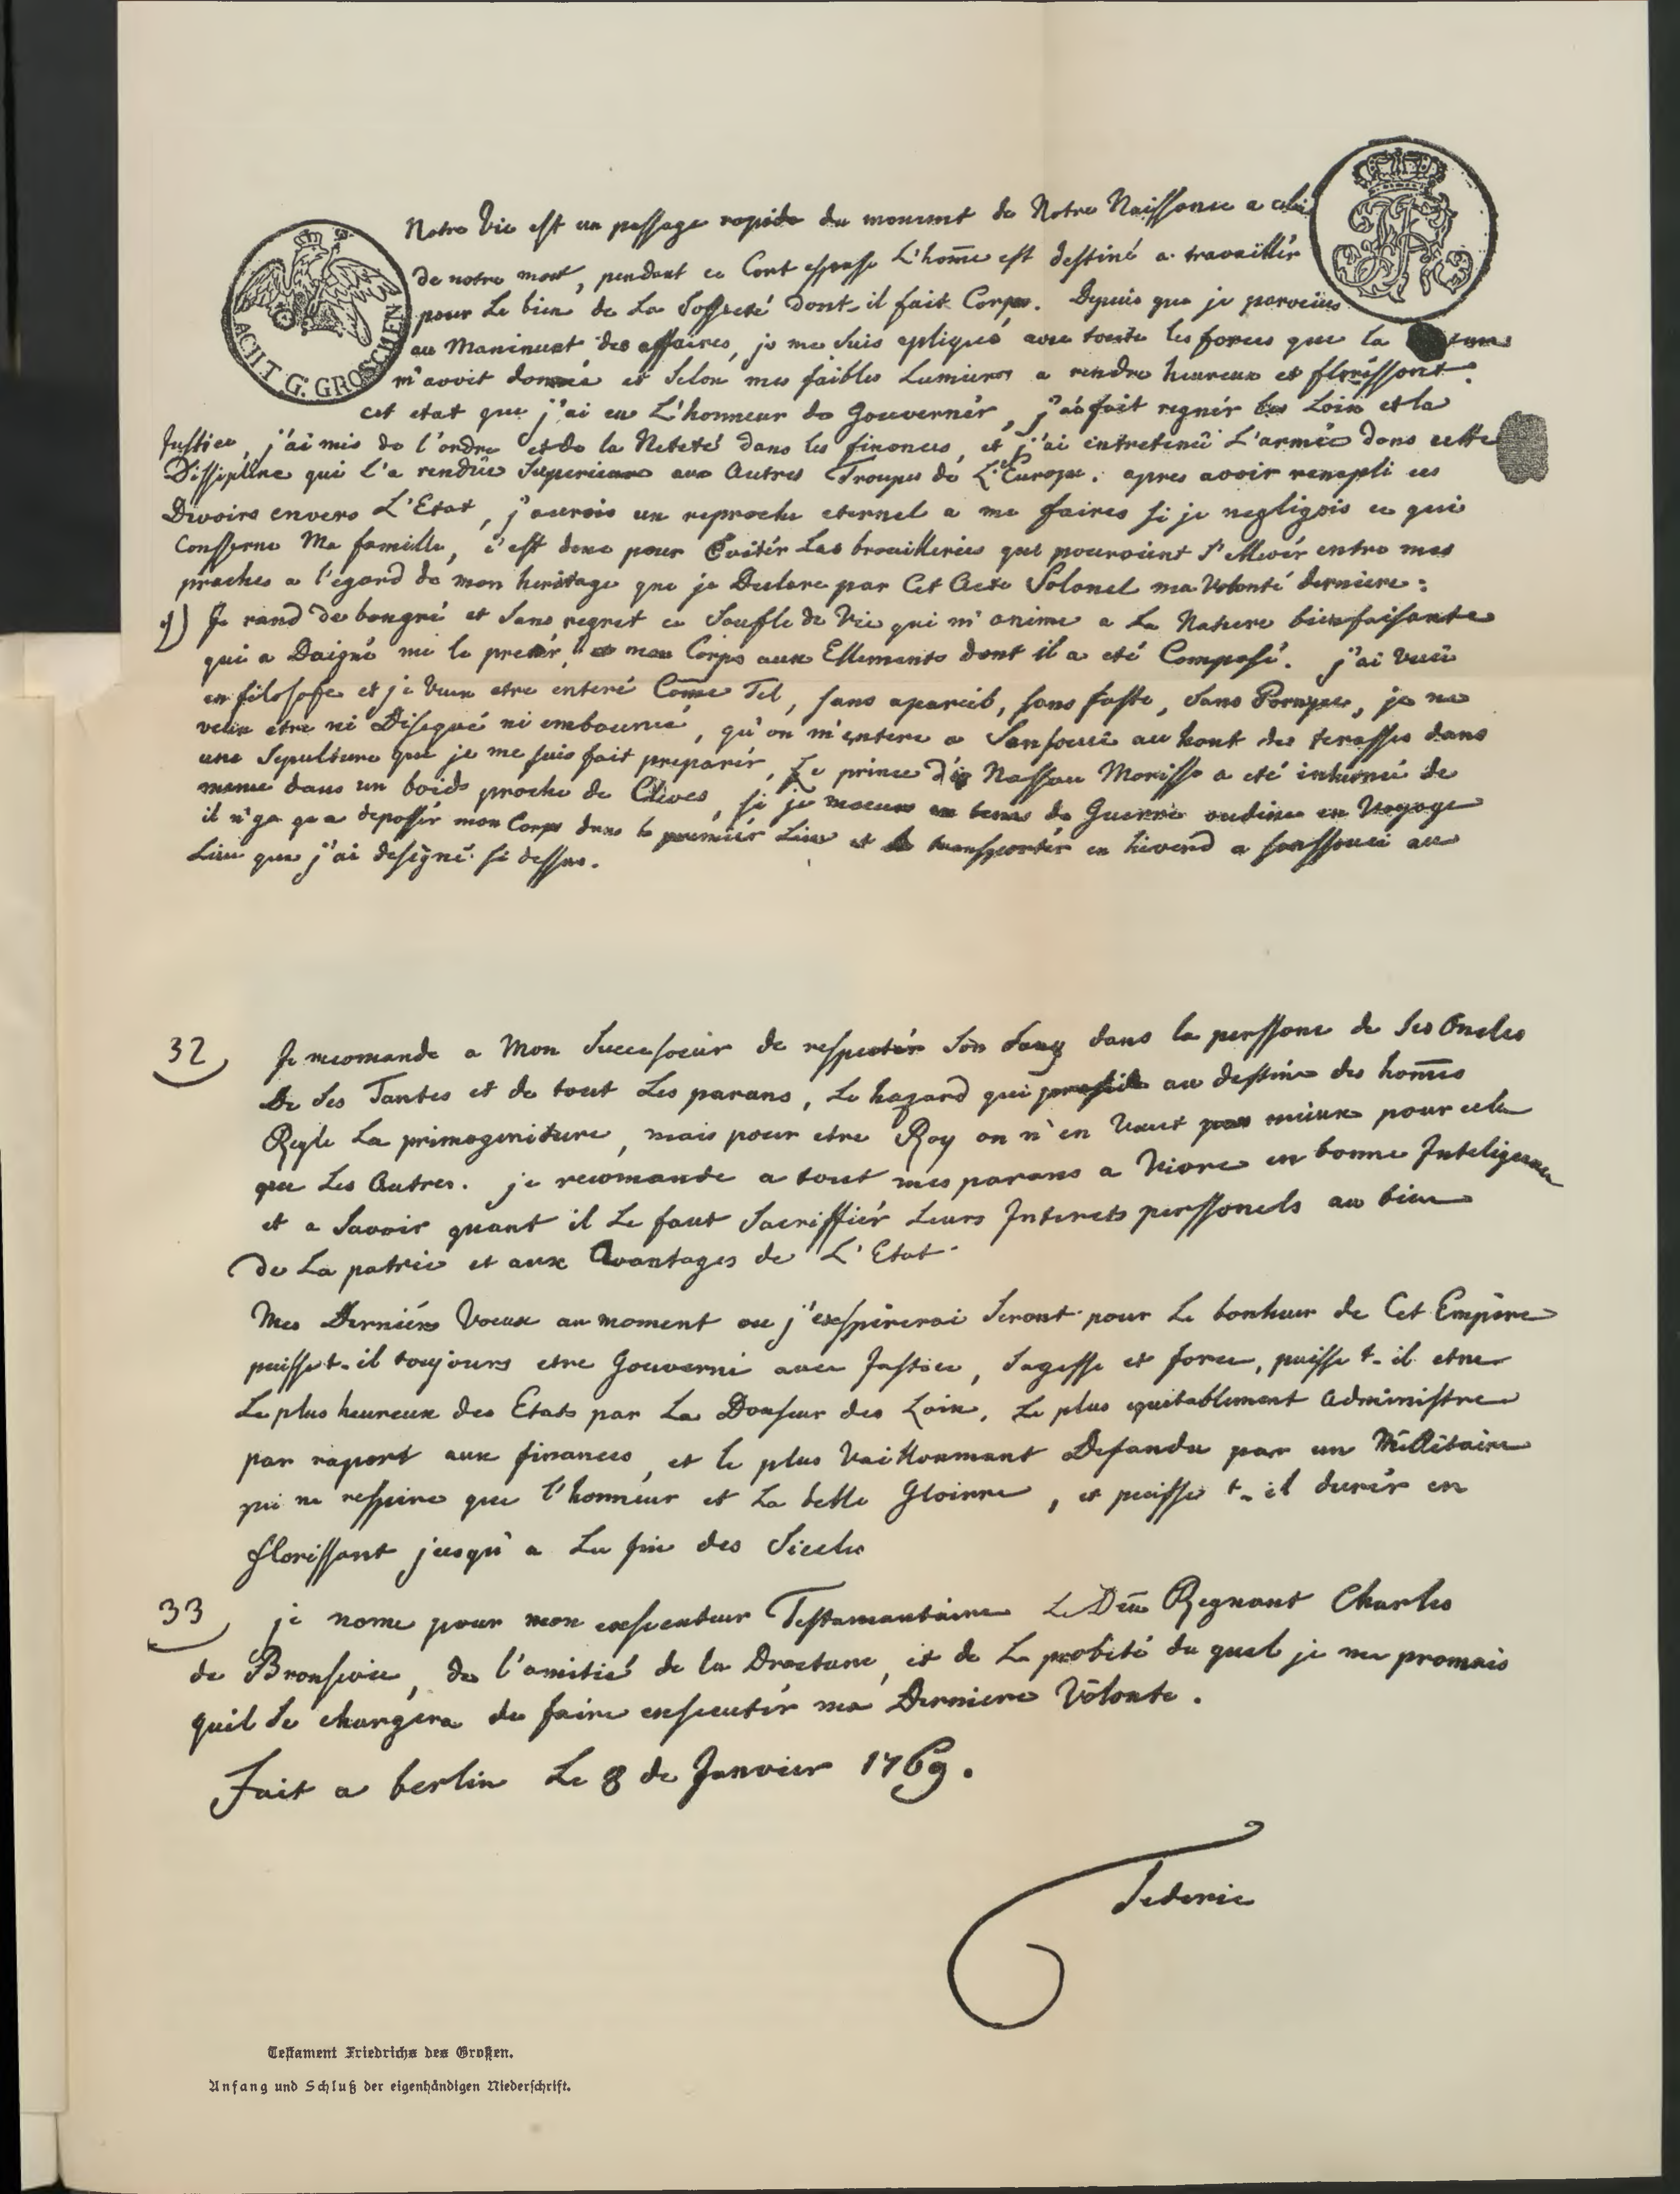 Notre Vie est un passage rapide du moment de Notre Naissance a celui
de notre mort, pendant ce Cort espasse L'home est destiné a travaillér
pour Le bien de La Sossieté dont il fait Corps. Depuis que je parveins
au Maniment des affaires, je me suis apliqué avec toute les forces que la
m'avoit donnée et selon mes faibles Lumieres a rendre heureux et florissant
cet etat que j'ai eu L'honneur de Gouvernér, j'ai fait regnér les Loix et la
Justice, j'ai mis de l'ordre et de la Neteté dans les finances, et j'ai entretenü L'armée dans cette
Dissipline qui l'a rendüe Superieure aux Autres Troupes de L'Europe. apres avoir rempli ces
Devoirs envers L'Etat, j'aurois un reproche eternel a me faires si je negligois ce qui
Conserne Ma famille, c'est donc pour Evitér Les brouilleries qui pouroient s'ellevér entre mes
proches a l'egard de mon heritage que je Declare par Cet Acte Solonel ma Volonté derniere:
1) Je rand de bongré et sans regret ce Soufle de Vie qui m'anime a La Nature bienfaisante
qui a Daigné me le pretér, et mon Corps aux Ellements dont il a eté Composé. j'ai Vecü
en filosofe et je Veux etre enteré Come Tel, sans apareib, sans faste, sans Pompe, je ne
veux etre ni Disequé ni embaumé, qu'on m'entere a Sansouci au haut des terasses dans
une Sepulture que je me suis fait preparér, Le prince de Nassau Morisse a eté inhumé de
meme dans un boids proche de Cleves, si je meurs en tems de Guerre oudien en Voyage
il n'ya qu'a deposér mon Corps dans le premiér Lieu et le transportér en hiverd a sanssouci au
Lieu que j'ai designé si dessus.
32) Je recomande a Mon Successeur de respectér Son Sang dans la perssone de Ses Oncles
De Ses Tantes et de tout Les parans, Le hazard qui preside au destin des homes
Regle La primogeniture, mais pour etre Roy on n'en Vaut pas mieux pour cela
que Les Autres. je recomande a tout mes parans a Vivre en bonne Inteligence
et a Savoir quant il Le faut Sacriffiér Leurs Interets perssonels au bien
de La patrie et aux Avantages de L'Etat.
Mes Derniérs Voeux au moment ou j'exspirerai Seront pour Le bonheur de Cet Empire
puisse t-il toujours etre Gouverné avec Justice, Sagesse et force, puisse t-il etre
Le plus heureux des Etats par La Douseur des Loix, Le plus equitablement Administre
par raport aux finances, et le plus Vaillamant Defandu par un Millitaire
qui ne respire que l'honneur et La belle Gloirre, et puisse t-il durér en
florissant jusqu'a La fin des Siecles
33) je nome pour mon exsecuteur Testamantaire Le Duc Regnant Charles
de Bronsvic, de l'amitié de la Droeture, et de La probité du quel je me promais
quil se chargera de faire exsecutér ma Derniere Volonte.
Fait a berlin Le 8 de Janvier 1769.
Federic
ACHT G. GROSCHEN
FR
Testament Friedrichs des Großen.
Anfang und Schluß der eigenhändigen Niederschrift.